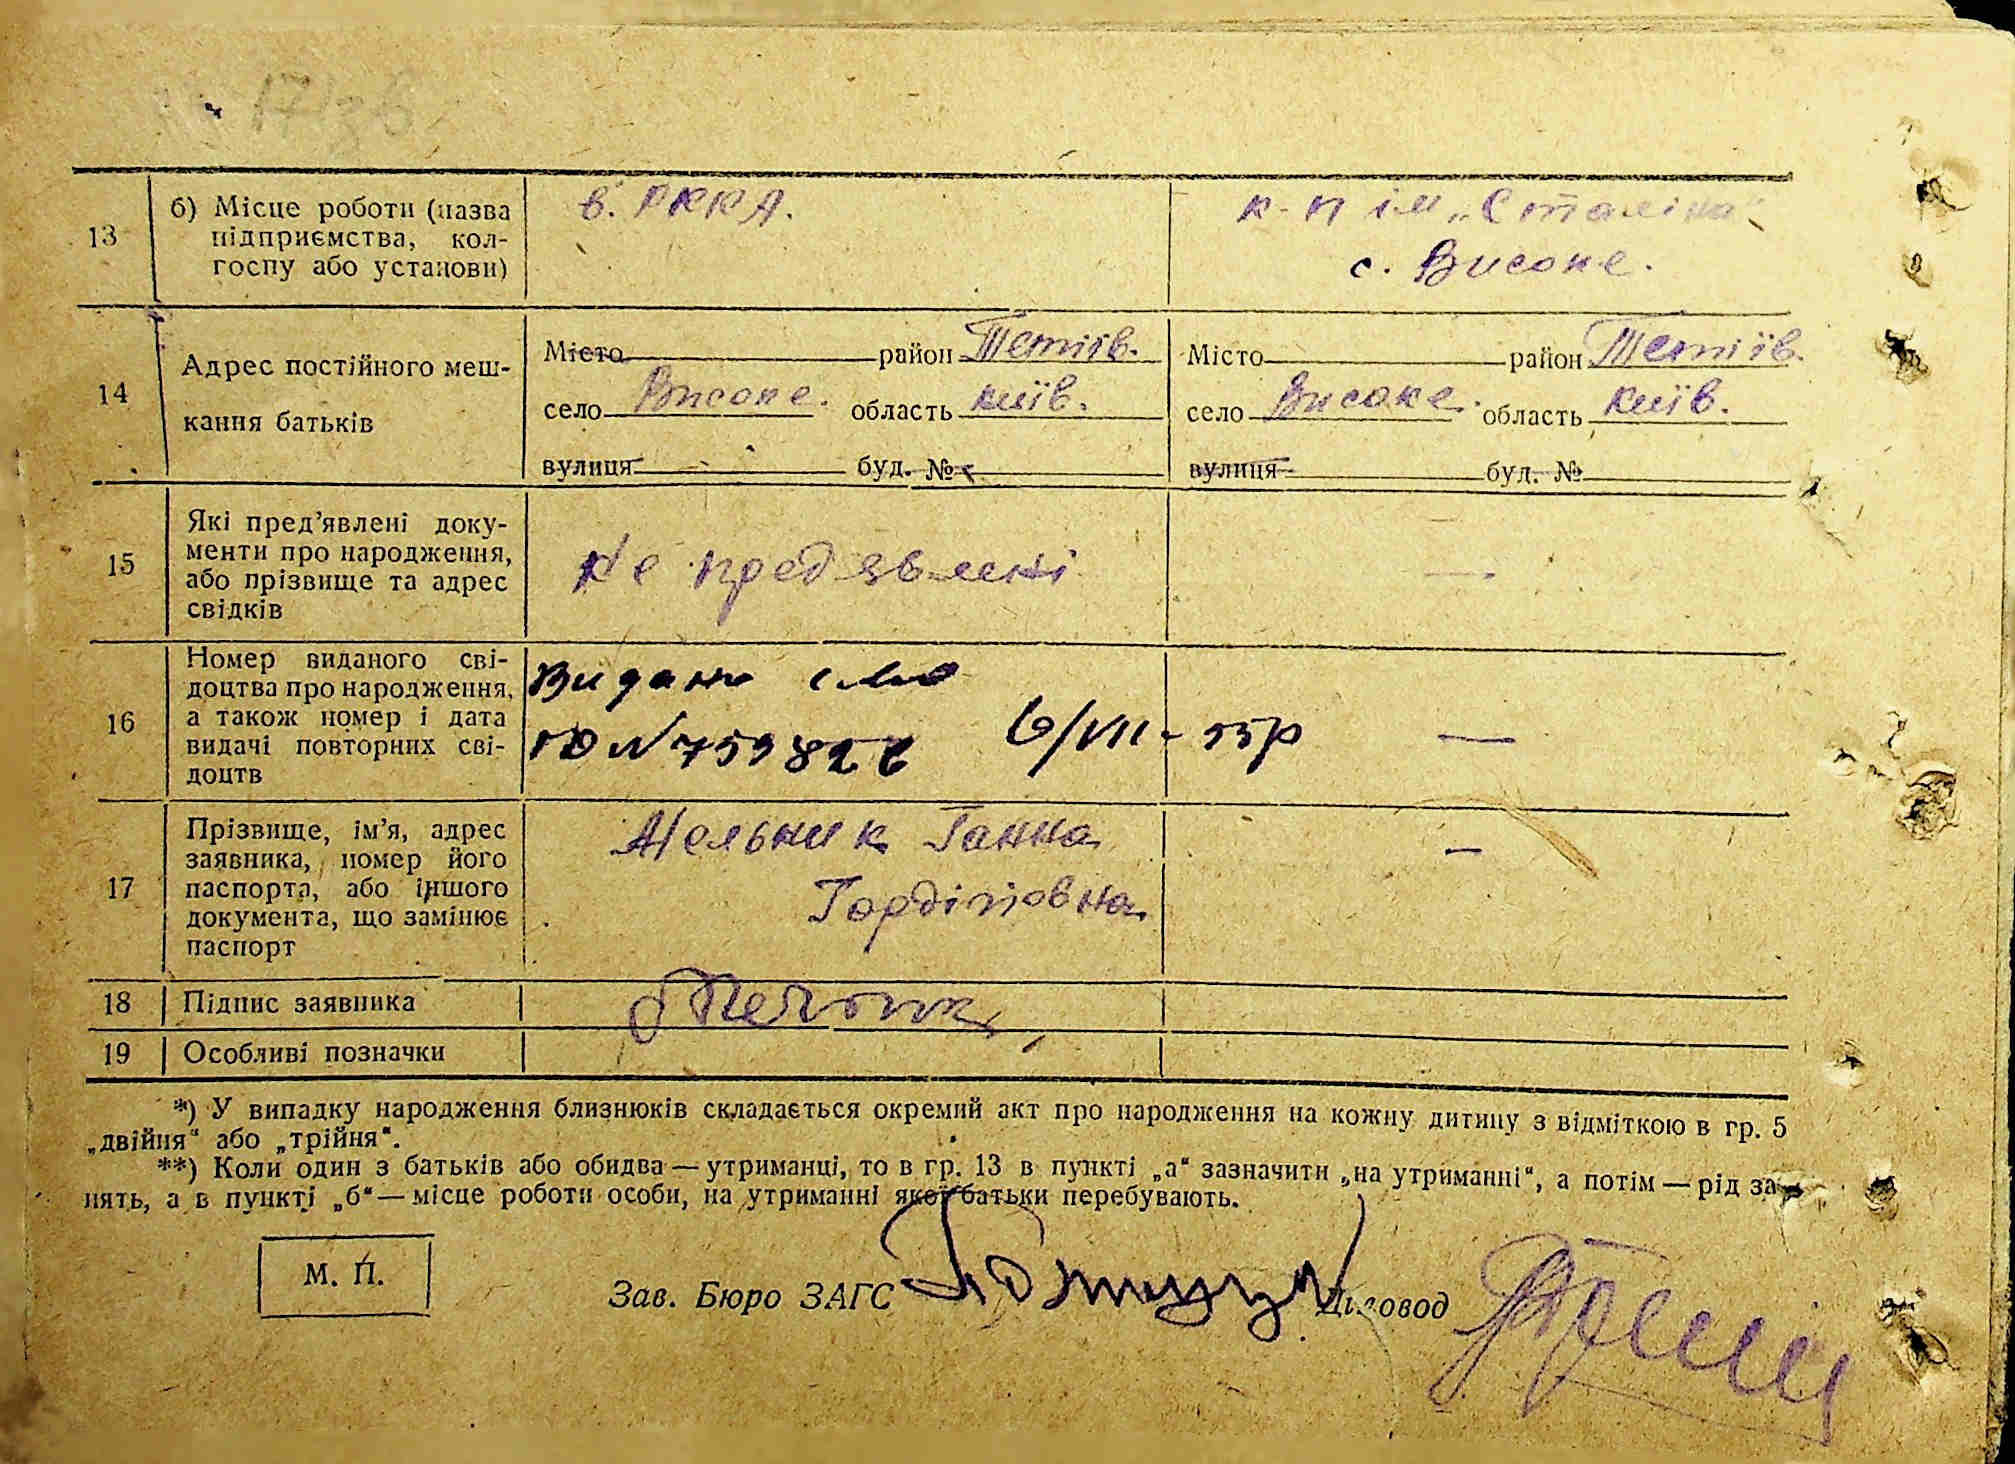 13
б) Місце роботи (назва
підприємства, кол-
госпу або установи)
в. РККА.
к-п ім. „Сталіна"
с. Високе.
14
Адрес постійного меш-
кання батьків
Місто район Тетіїв.
село Високе. область Київ.
вулиця буд. №
Місто район Тетіїв.
село Високе. область Київ.
вулиця буд. №
15
Які пред’явлені доку-
менти про народження,
або прізвище та адрес
свідків
Не предявлені
—
16
Номер виданого сві-
доцтва про народження,
а також номер і дата
видачі повторних сві-
доцтв
Видано
ЮN 759826 6/VII - 55р
—
17
Прізвище, ім’я, адрес
заявника, номер його
паспорта, або іншого
документа, що замінює
паспорт
Мельник Ганна
Гордіївна
—
18
Підпис заявника
19
Особливі позначки
*) У випадку народження близнюків складається окремий акт про народження на кожну дитину з відміткою в гр. 5
„двійня“ або „трійня“.
**) Коли один з батьків або обидва — утриманці, то в гр. 13 в пункті „а“ зазначити „на утриманні“, а потім — рід за-
нять, а в пункті „б“ — місце роботи особи, на утриманні якої батьки перебувають.
М. П.
Зав. Бюро ЗАГС
Діловод